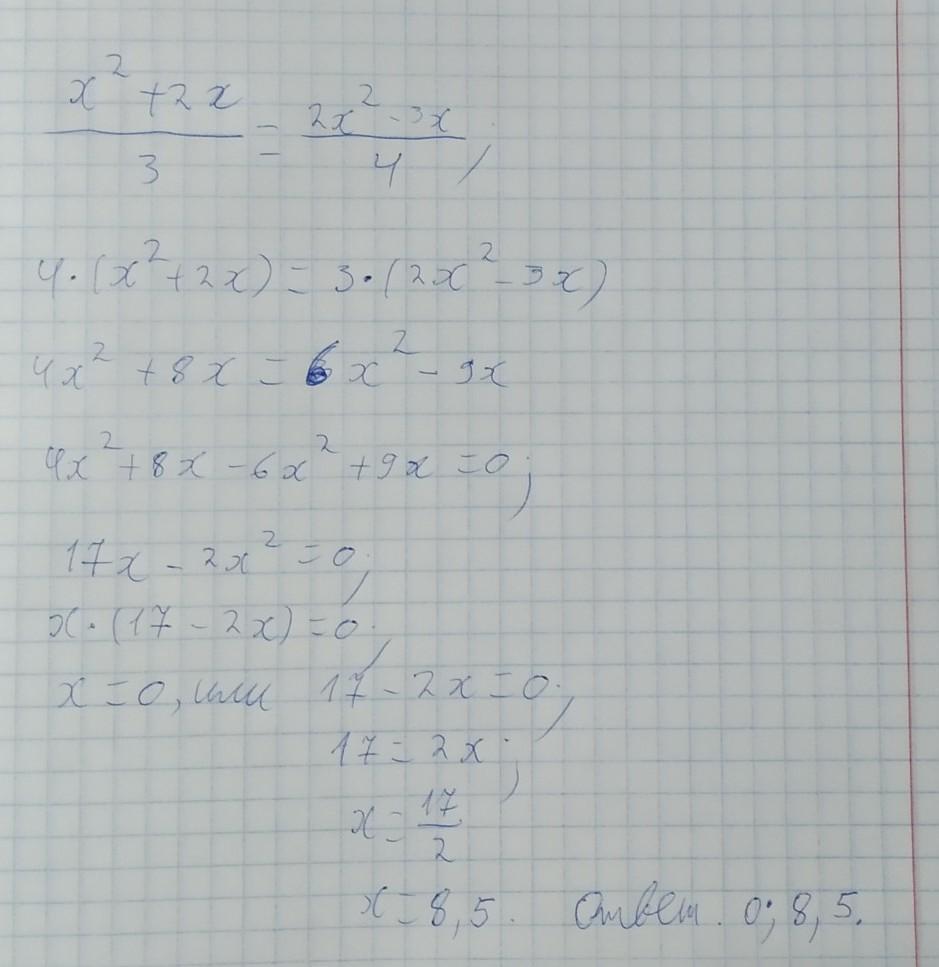 (x² + 2x)/3 = (2x² - 3x)/4;
4·(x² + 2x) = 3·(2x² - 3x)
4x² + 8x = 6x² - 9x
4x² + 8x - 6x² + 9x = 0;
17x - 2x² = 0;
x·(17 - 2x) = 0;
x = 0, или 17 - 2x = 0;
17 = 2x;
x = 17/2
x = 8,5. Ответ. 0; 8,5.